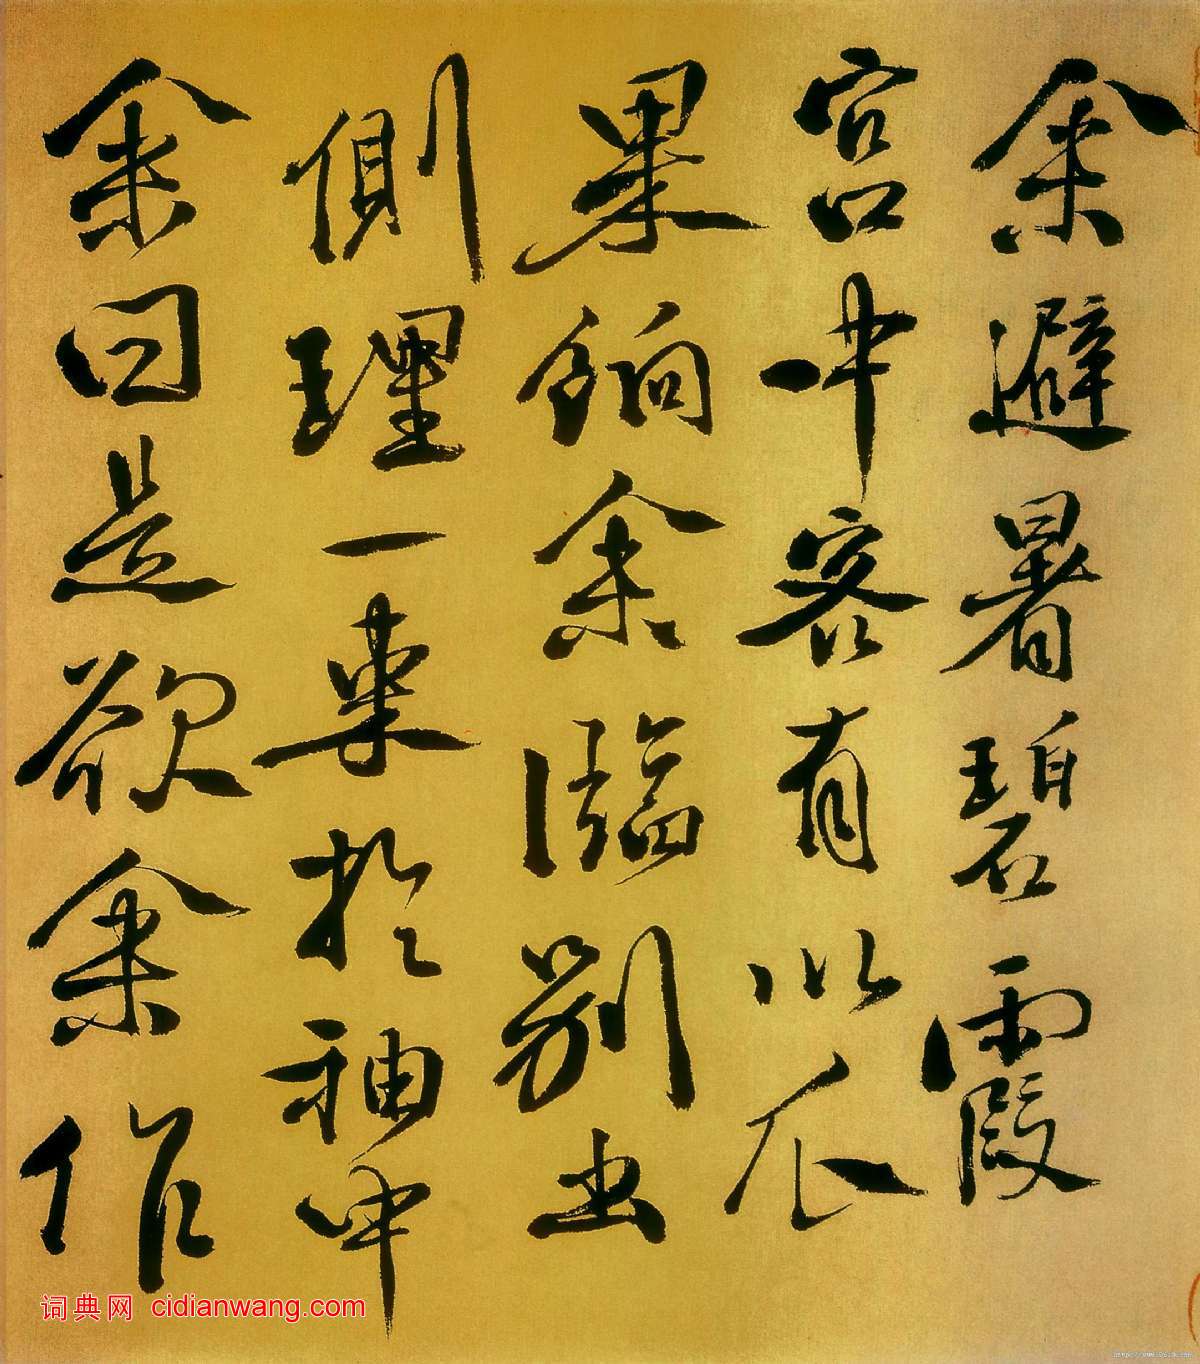 余避暑碧霞
宮中客有以瓜
果餉余臨別出
側理一束於袖中
余曰是欲余作
词典网 cidianwang.com